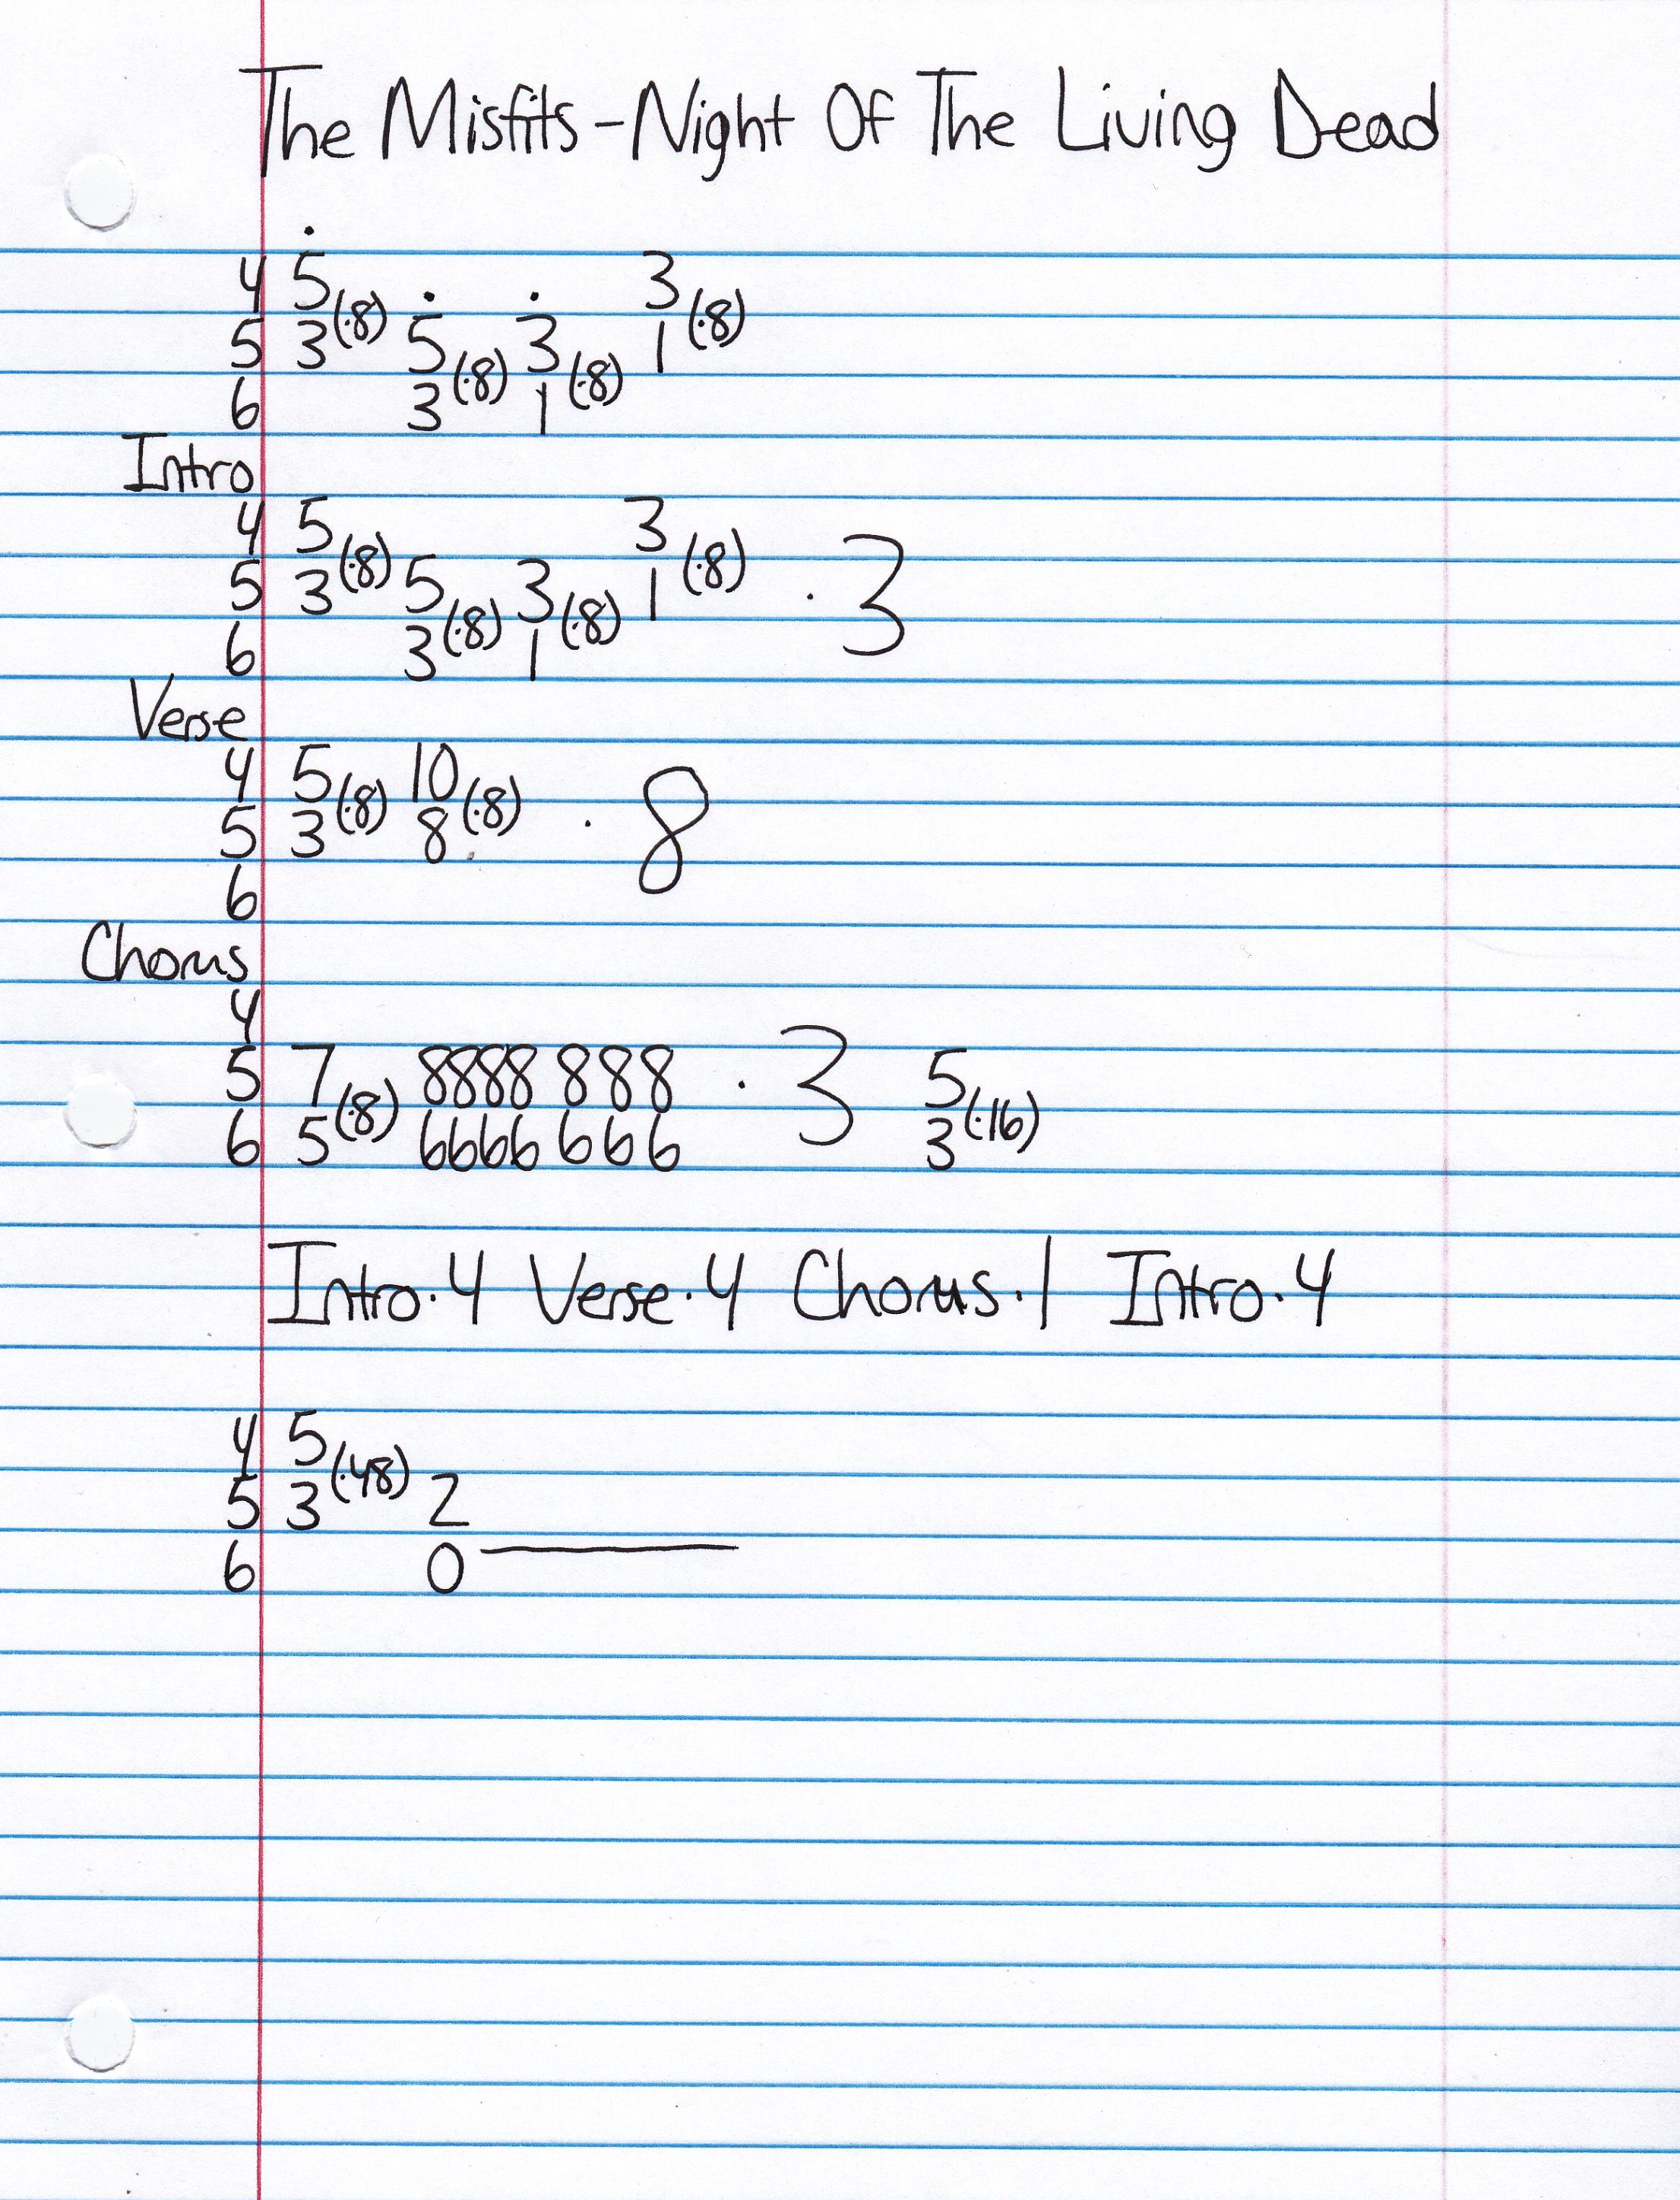 The Misfits - Night Of The Living Dead
4 5 3
5 3 (·8) 5 3 1 (·8)
6 3 (·8) 1 (·8)
Intro
4 5 3
5 3 (·8) 5 3 1 (·8) · 3
6 3 (·8) 1 (·8)
Verse
4 5 10
5 3 (·8) 8 (·8) · 8
6
Chorus
4
5 7 8888 8 8 8 · 3 5
6 5 (·8) 6666 6 6 6 3 (·16)
Intro·4 Verse·4 Chorus·1 Intro·4
4 5
5 3 (·48) 2
6 0